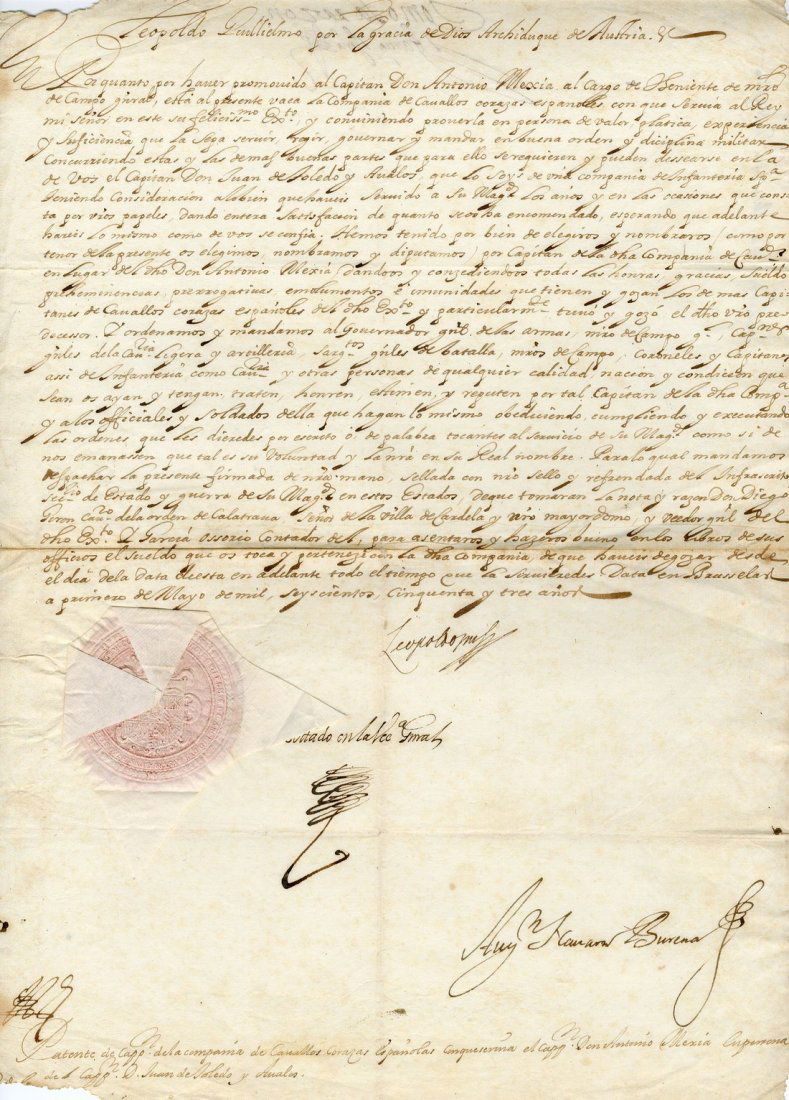 Leopoldo Guillielmo por la gracia de Dios Archiduque de Austria. &
Por quanto por haver promovido al Capitan Don Antonio Mexia, al Cargo de Theniente de mro
de Campo gnral, está al presente vaca la Compania de Cavallos corazas españoles, con que servia al Rey
mi Señor en este su felicissmo Exto, y conviniendo proverla en persona de valor platica, experiencia
y Suficiencia que la sepa servir, regir, governar y mandar en buena orden y diciplina militar
Concurriendo estas y las demas buenas partes que para ello se requieren y pueden dessearse en la
de Vos el Capitan Don Juan de Toledo y Avalos, que lo soys de una compania de Infanteria spa
teniendo Consideracion a lo bien que haveis servido a Su Magd los años y en las ocasiones que cons
ta por vros papeles, dando entera satisfacion de quanto se os ha encomendado, esperando que adelante
hareis lo mismo como de vos se confia. Hemos tenido por bien de elegiros y nombraros (como por
tenor de la presente os elegimos, nombramos y diputamos) por Capitan de la dha Compania de Cavos
en lugar del dho Don Antonio Mexia, dandoos y conzediendoos todas las honras, gracias, sueldo
preheminencias, prerrogativas, emolumentos e imunidades que tienen y gozan los de mas Capi
tanes de Cavallos corazas españoles del dho Exto y particularmte tuvo y gozó el dho vro pre-
decessor. Y ordenamos y mandamos al Governador gnl. de las armas, mro de Campo gl, Capnes
gnles de la Cavria Ligera y artilleria, sargtos gnles de batalla, mros de Campo, coroneles y Capitanes
assi de Infanteria como Cavria y otras personas de qualquier calidad, nacion y condicion que
sean os ayan y tengan, traten, honren, estimen, y reputen por tal Capitan de la dha Compa
y a los officiales y soldados della que hagan lo mismo obedeciendo, cumpliendo y executando
las ordenes, que les dieredes por escrito o de palabra tocantes al servicio de Su Magd como si de
nos emanassen que tal es su voluntad y la nra en su Real nombre. Para lo qual mandamos
despachar la presente firmada de nra mano, sellada con nro sello y refrendada del Infrascrito
Secrio de Estado y guerra de Su Magd en estos Estados, de que tomaran la nota y razon Don Diego
Giron Cavro de la orden de Calatrava Señor de la Villa de Cardela y vro mayordomo, y Veedor gnl del
dho Exto Y Garcia Ossorio Contador del, para asentaros y hazeros bueno en los libros de sus
officios el sueldo que os toca y pertenezce con la dha compania de que haveis de gozar desde
el dia de la data desta en adelante todo el tiempo que la sirvieredes Data en Brusselas
a primero de Mayo de mil, seyscientos, Cinquenta y tres años
Leopoldo
Gnral
Augn Navarro Burena
Patente de Cappn de la compania de Cavallos Corazas Españolas con que servia el Cappn Don Antonio Mexia en persona
del Cappn D. Juan de Toledo y Avalos.